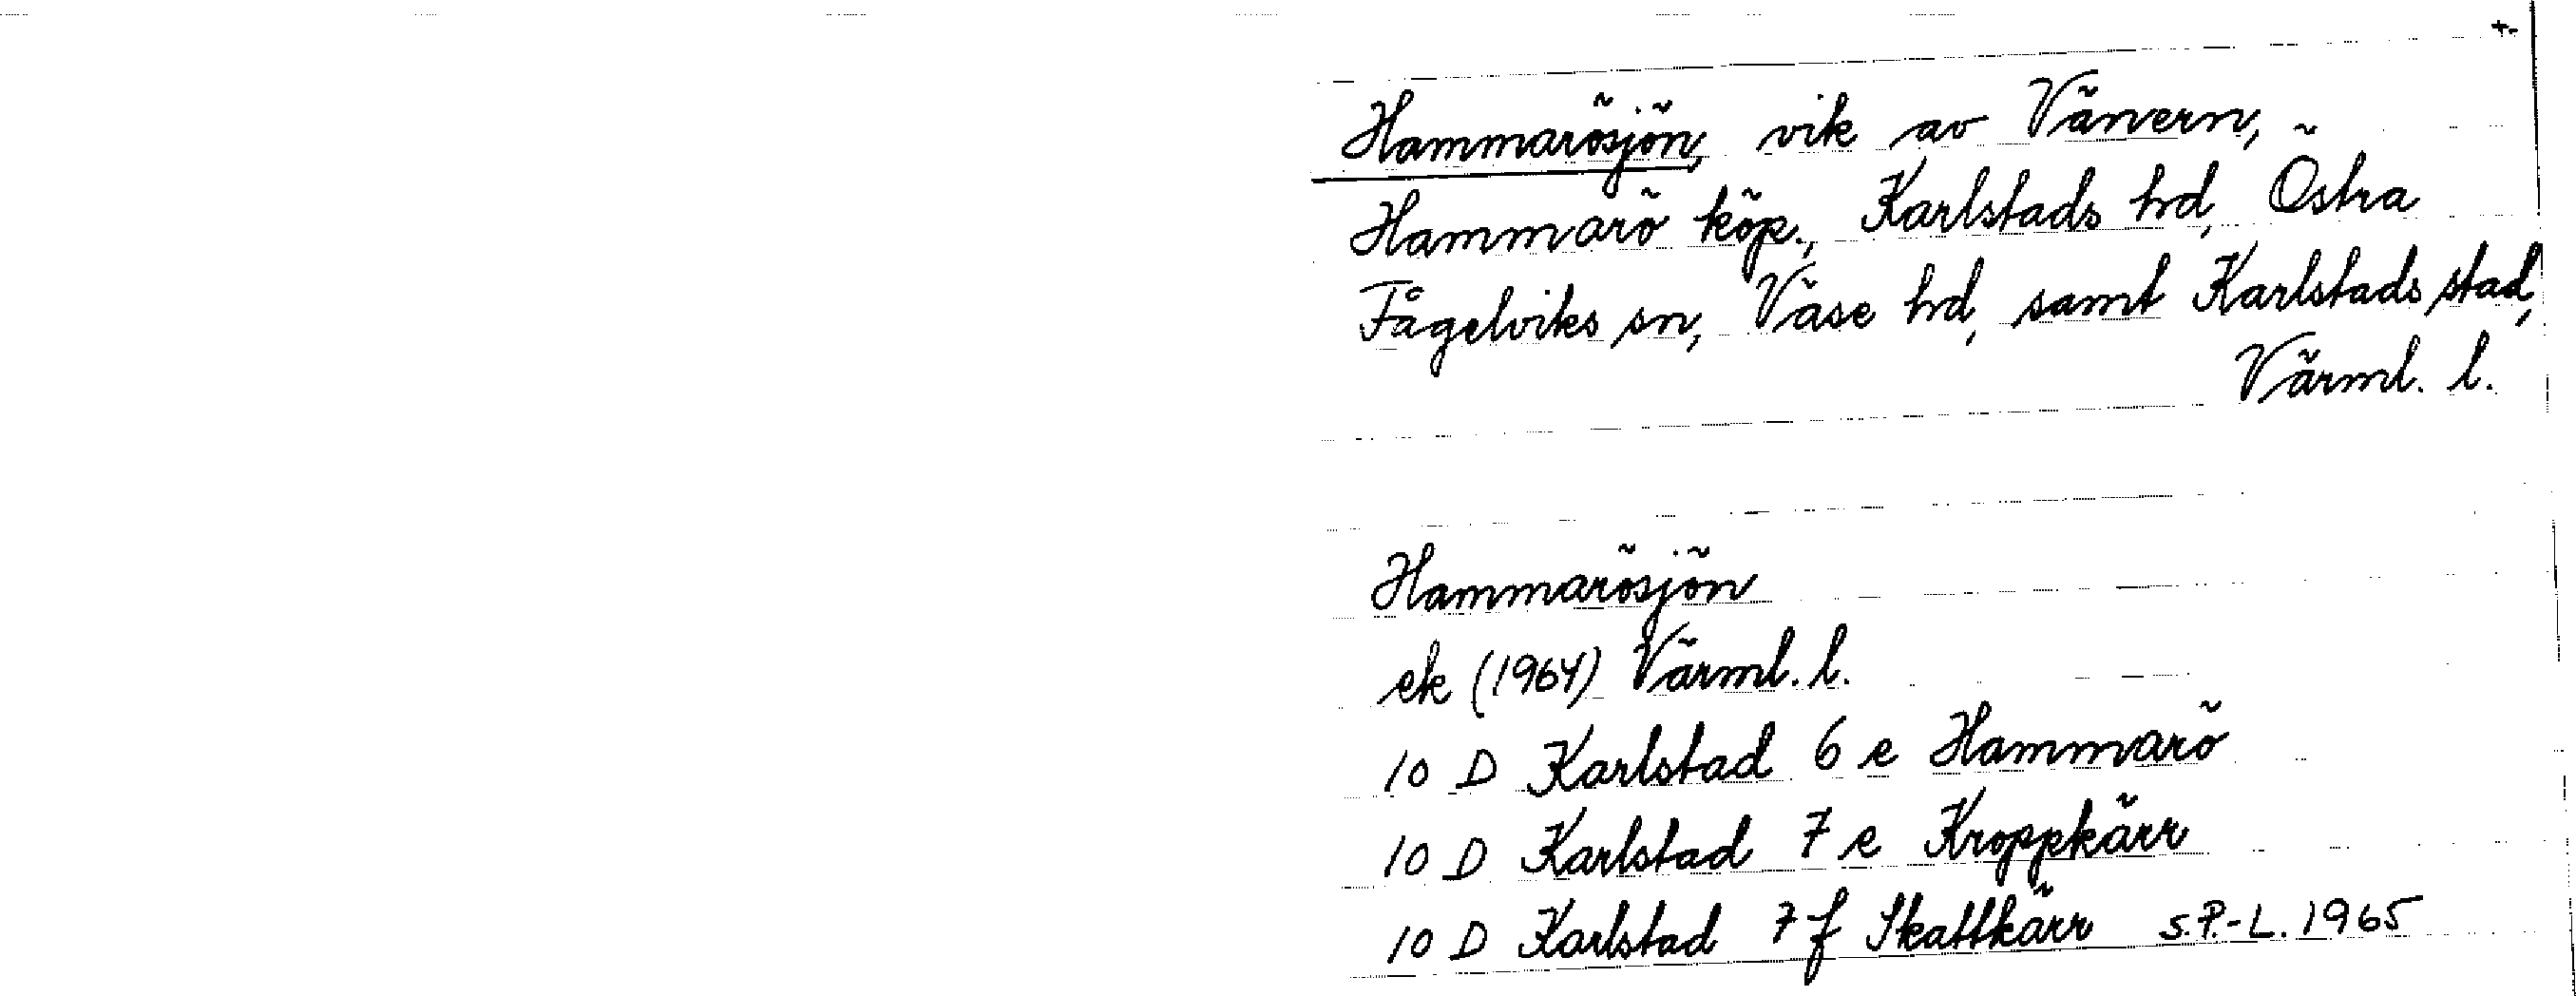 Hammarösjön, vik av Vänern,
Hammarö köp., Karlstads hd, Östra
Fågelviks sn, Väse hd, samt Karlstads stad,
Värml. l.
Hammarösjön
ek (1964) Värml. l.
10 D Karlstad 6 e Hammarö
10 D Karlstad 7 e Kroppkärr
10 D Karlstad 7 f Skattkärr S.P.-L. 1965